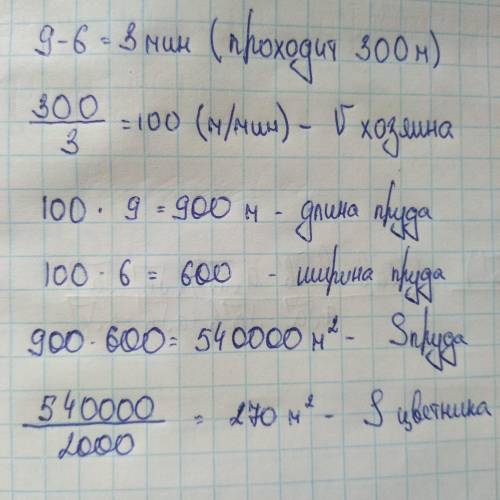 9-6 = 3 мин (проходит 300 м)
300
3
= 100 (м/мин) - V хозяина
100 · 9 = 900 м - длина пруда
100 · 6 = 600 - ширина пруда
900 · 600 = 540000 м² - S пруда
540000
2000
= 270 м² - S цветника